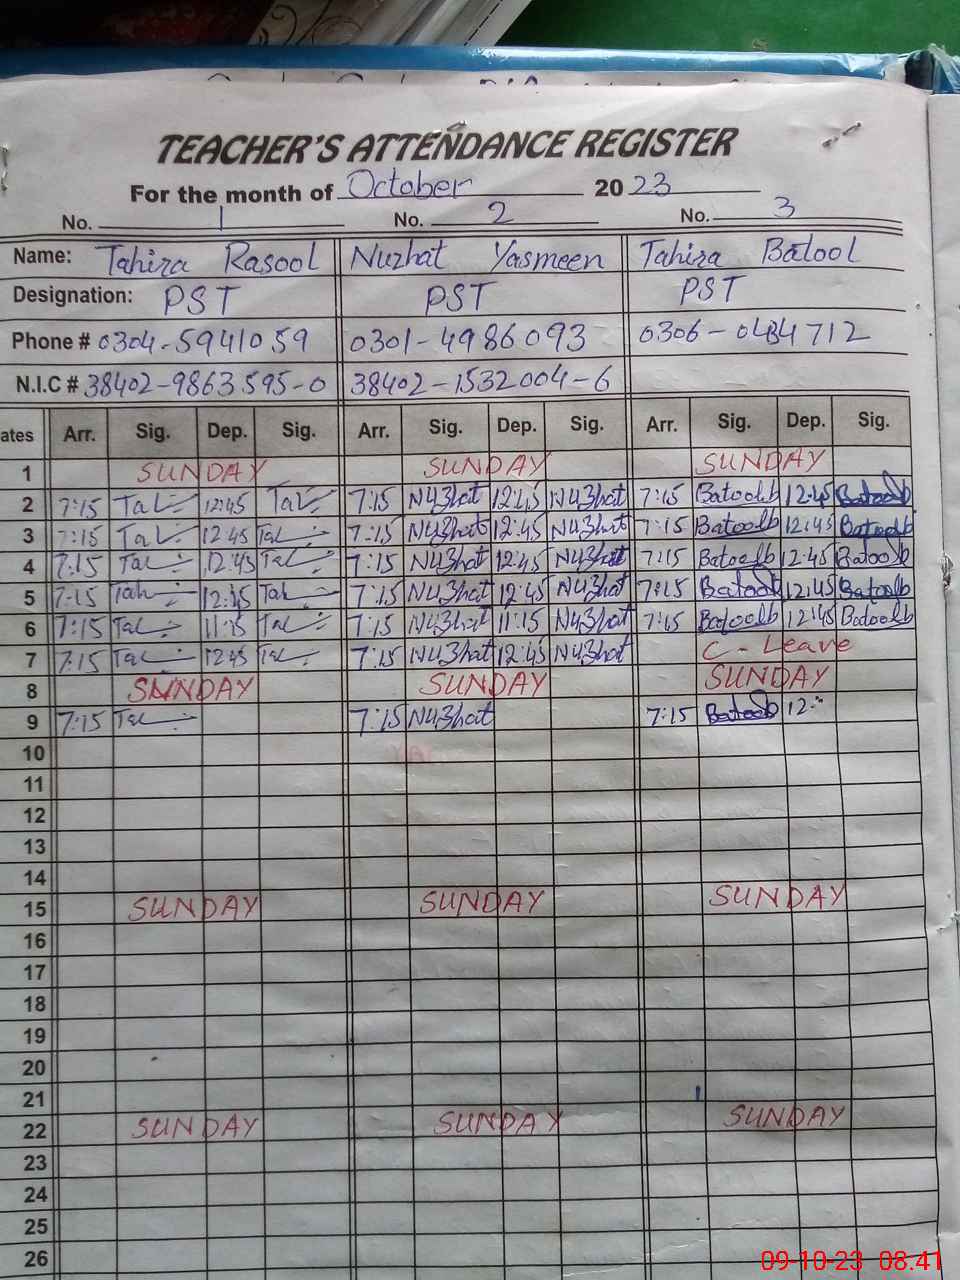 TEACHER'S ATTENDANCE REGISTER
For the month of October 2023
No. 1 No. 2 No. 3
Name: Tahira Rasool Nuzhat Yasmeen Tahira Batool
Designation: PST PST PST
Phone # 0304-5941059 0301-4986093 0306-0484712
N.I.C # 38402-9863595-0 38402-1532004-6
ates Arr. Sig. Dep. Sig. Arr. Sig. Dep. Sig. Arr. Sig. Dep. Sig.
1 SUNDAY SUNDAY SUNDAY
2 7:15 12:45 7:15 Nu3hat 12:45 Nu3hat 7:15 Batoolb 12:45 Batoolb
3 7:15 12:45 7:15 Nu3hat 12:45 Nu3hat 7:15 Batoolb 12:45 Batoolb
4 7:15 12:45 7:15 Nu3hat 12:45 Nu3hat 7:15 Batoolb 12:45 Batoolb
5 7:15 12:45 7:15 Nu3hat 12:45 Nu3hat 7:15 Batoolb 12:45 Batoolb
6 7:15 11:15 7:15 Nu3hat 11:15 Nu3hat 7:15 Batoolb 12:45 Batoolb
7 7:15 12:45 7:15 Nu3hat 12:45 Nu3hat C - Leave
8 SUNDAY SUNDAY SUNDAY
9 7:15 7:15 Nu3hat 7:15 Batoolb 12:
10
11
12
13
14
15 SUNDAY SUNDAY SUNDAY
16
17
18
19
20
21
22 SUNDAY SUNDAY SUNDAY
23
24
25
26
09-10-23 08.41